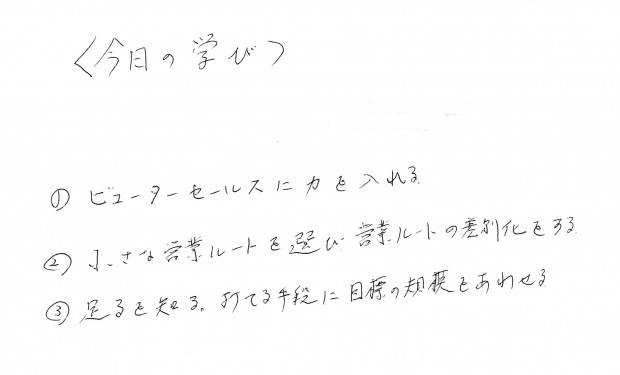 〈今日の学び〉
① ビューターセールスに力を入れる
② 小さな営業ルートを選び営業ルートの差別化をする
③ 足るを知る。打てる手段に目標の規模をあわせる